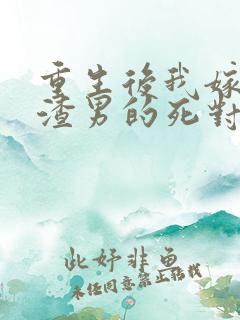 重生後我嫁
渣男的死對
此妤非魚
未經同意禁止轉載